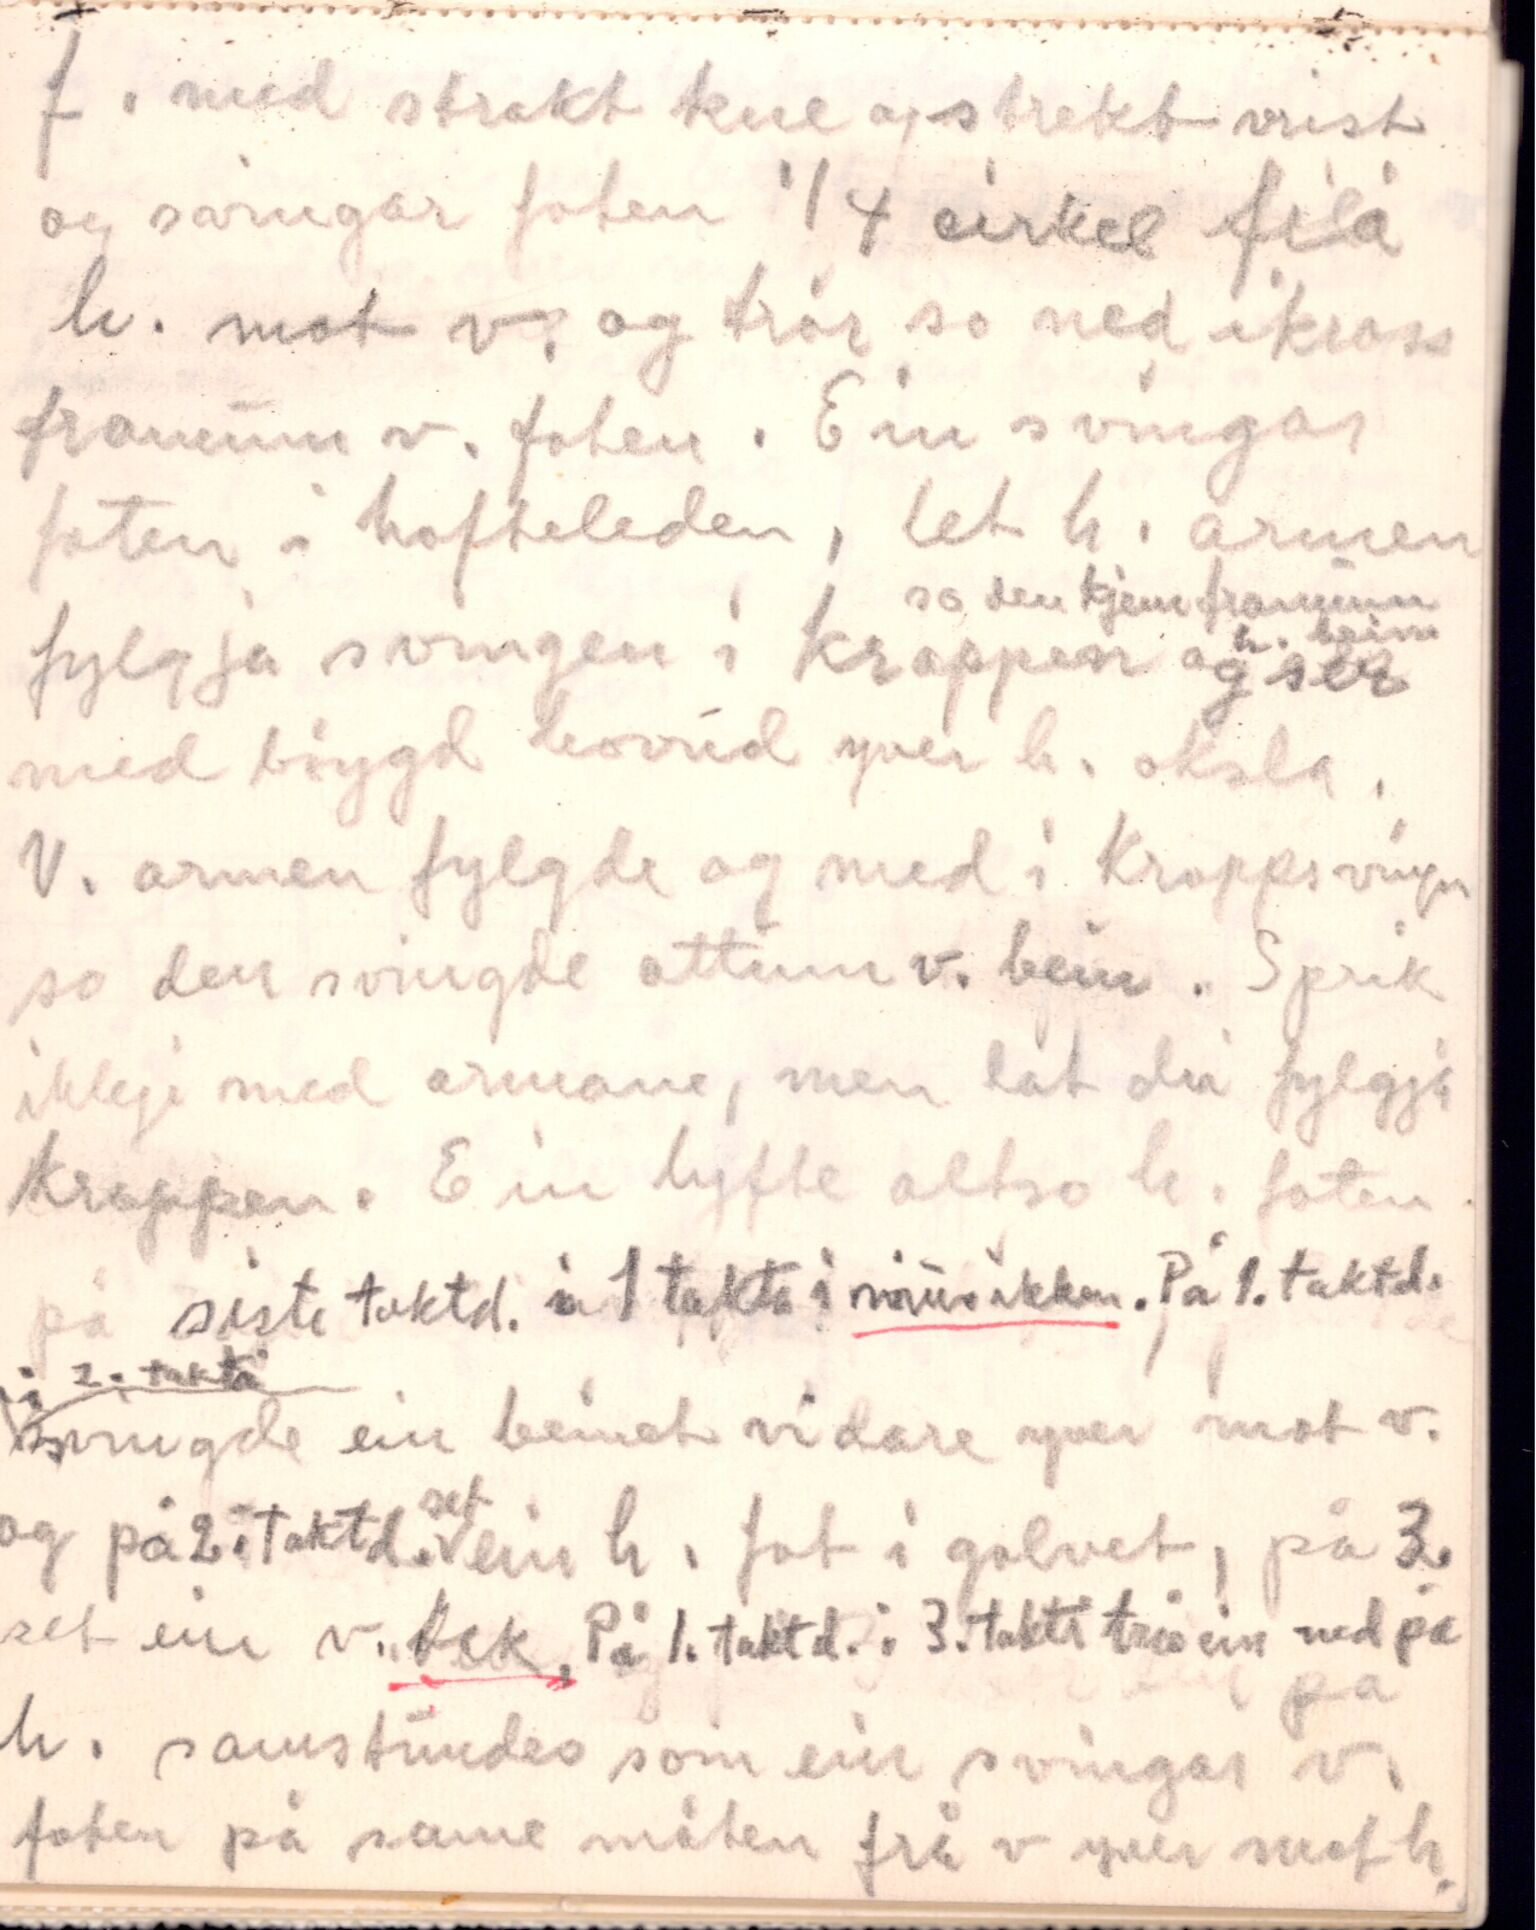 f. med strakt kne og strekt vrist
og svingar foten 1/4 cirkel frå
h. mot v. og trår so ned ikross
framum v. foten. Ein svingar
foten i hofteleden, let h. armen
so den kjem framum
h. bein
fylgja svingen i kroppen og ser
med bøygd hovud yver h. oksla.
V. armen fylgde og med i kroppsvingen
so den svingde attum v. bein. Sprik
ikkje med armane, men lat dei fylgja
kroppen. Ein lyfte altso h. foten
på siste taktd. i 1 takta i musikken. På 1. taktd.
i 2. takta
svingde ein beinet vidare yver mot v.
set
og på 2. taktd. ein h. fot i golvet, på 3.
set ein v. På 1. taktd. i 3. takti trår ein ned på
på
h. samstundes som ein svingar v.
foten på same måten frå v yver mot h.